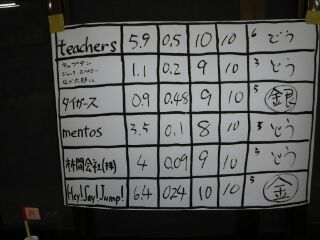 teachers 5.9 0.5 10 10 6 どう
キャプテン ジャック スパロー 1.1 0.2 9 10 3 どう
タイガース 0.9 0.48 9 10 5 銀
mentos 3.5 0.1 8 10 5 どう
林間会社(株) 4 0.09 9 10 5 どう
Hey!Say!Jump! 6.4 0.24 10 10 5 金